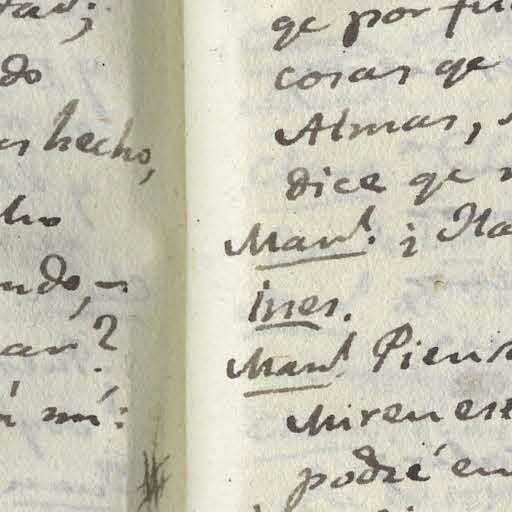 do
hecho,
ndo,
ar?
mi:
qe por
cosas qe
Almas,
dice qe
Manl. ¿
Ines.
Manl Piens
Miren est
podré en